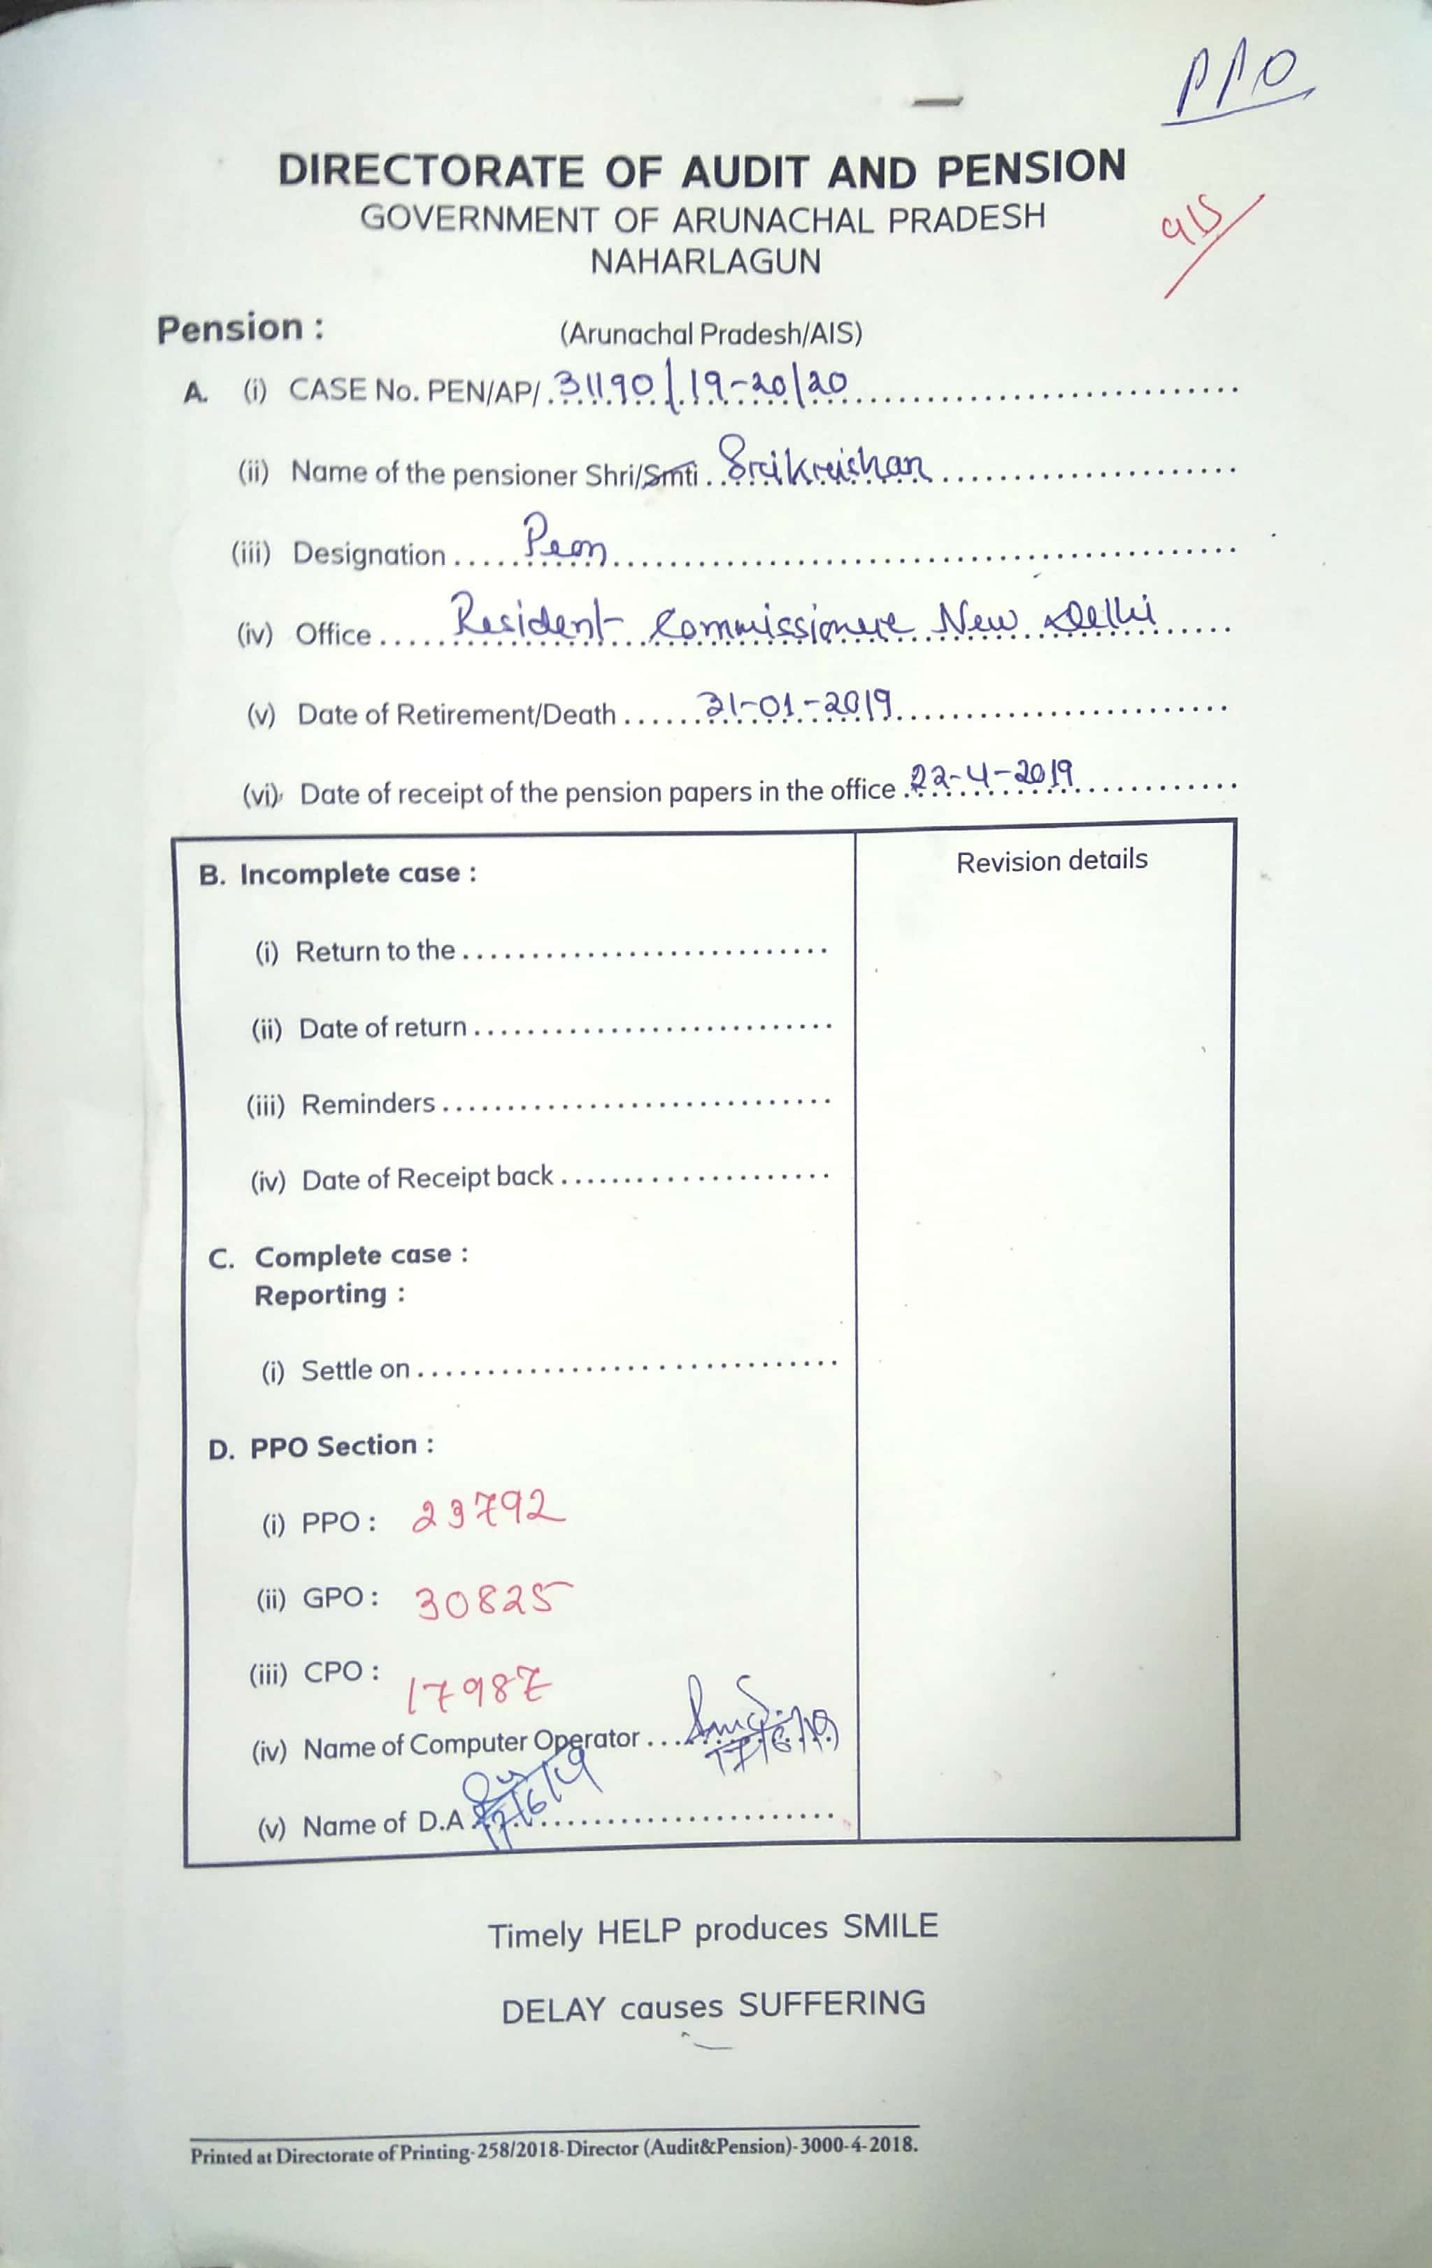 PPO
DIRECTORATE OF AUDIT AND PENSION
GOVERNMENT OF ARUNACHAL PRADESH
NAHARLAGUN
Pension :
(Arunachal Pradesh/AIS)
A. (i) CASE No. PEN/AP/ 31190/19-20/20
(ii) Name of the pensioner Shri/Smti Srikrishan
(iii) Designation Peon
(iv) Office Resident Commissioner New Delhi
(v) Date of Retirement/Death 31-01-2019
(vi) Date of receipt of the pension papers in the office 22-4-2019
B. Incomplete case :
(i) Return to the
(ii) Date of return
(iii) Reminders
(iv) Date of Receipt back
C. Complete case :
Reporting :
(i) Settle on
D. PPO Section :
(i) PPO : 23792
(ii) GPO : 30825
(iii) CPO : 17987
(iv) Name of Computer Operator 17/6/19
(v) Name of D.A 17/6/19
Revision details
Timely HELP produces SMILE
DELAY causes SUFFERING
Printed at Directorate of Printing-258/2018-Director (Audit&Pension)-3000-4-2018.